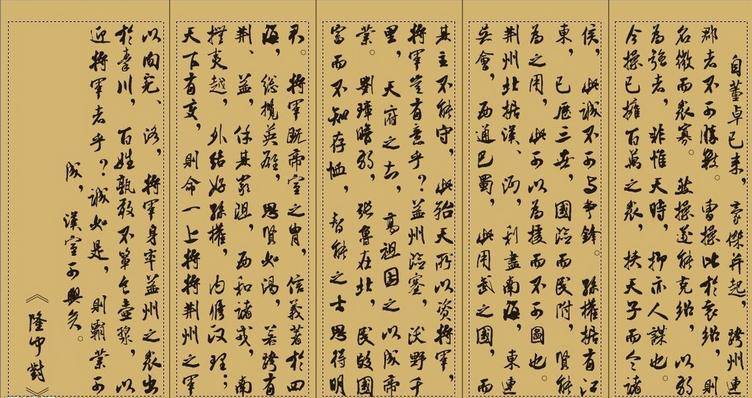 自董卓已來，豪傑并起，跨州連
郡者不可勝數。曹操比於袁紹，則
名微而衆寡。然操遂能克紹，以弱
為強者，非惟天時，抑亦人謀也。
今操已擁百萬之衆，挾天子而令諸
侯，此誠不可与爭鋒。孫權據有江
東，已歷三世，國險而民附，賢能
為之用，此可以為援而不可圖也。
荊州北據漢、沔，利盡南海，東連
吳會，西通巴蜀，此用武之國，而
其主不能守，此殆天所以資將軍，
將軍豈有意乎？益州險塞，沃野千
里，天府之土，高祖因之以成帝
業。劉璋暗弱，張魯在北，民殷國
富而不知存恤，智能之士思得明
君。將軍既帝室之胄，信義著於四
海，總攬英雄，思賢如渴，若跨有
荊、益，保其巖阻，西和諸戎，南
撫夷越，外結好孫權，內修政理；
天下有變，則命一上將將荊州之軍
以向宛、洛，將軍身率益州之衆出
於秦川，百姓孰敢不簞食壺漿，以
迎將軍者乎？誠如是，則霸業可
成，漢室可興矣。
《隆中對》